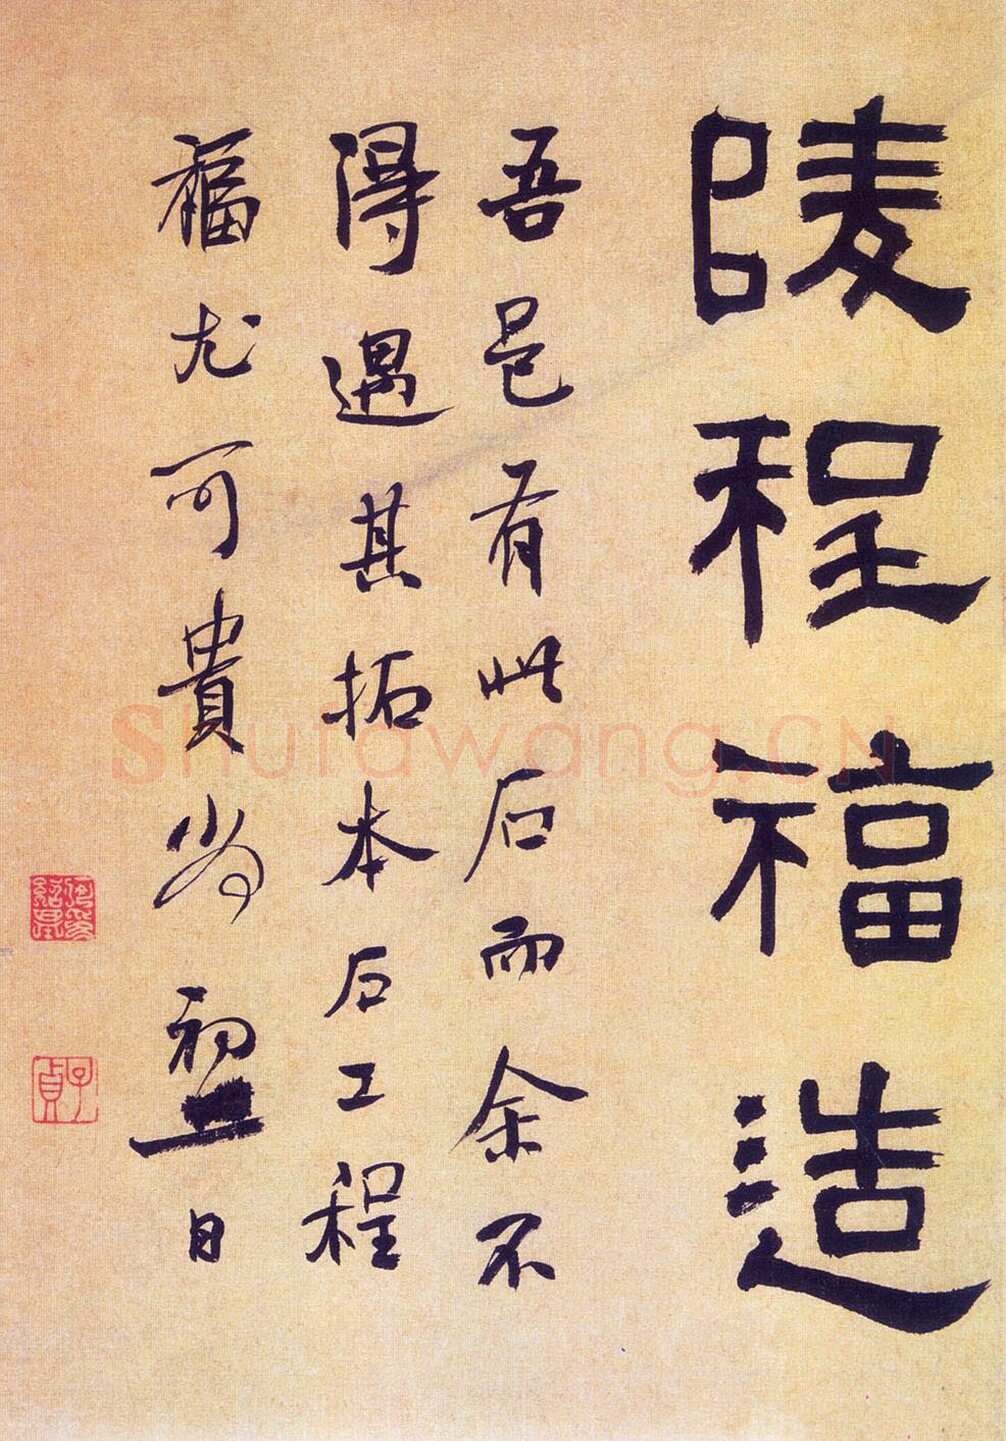 陵程福造
吾邑有此石而余不
得遇其拓本石工程
福尤可貴 日
子貞
Shufawang.CN